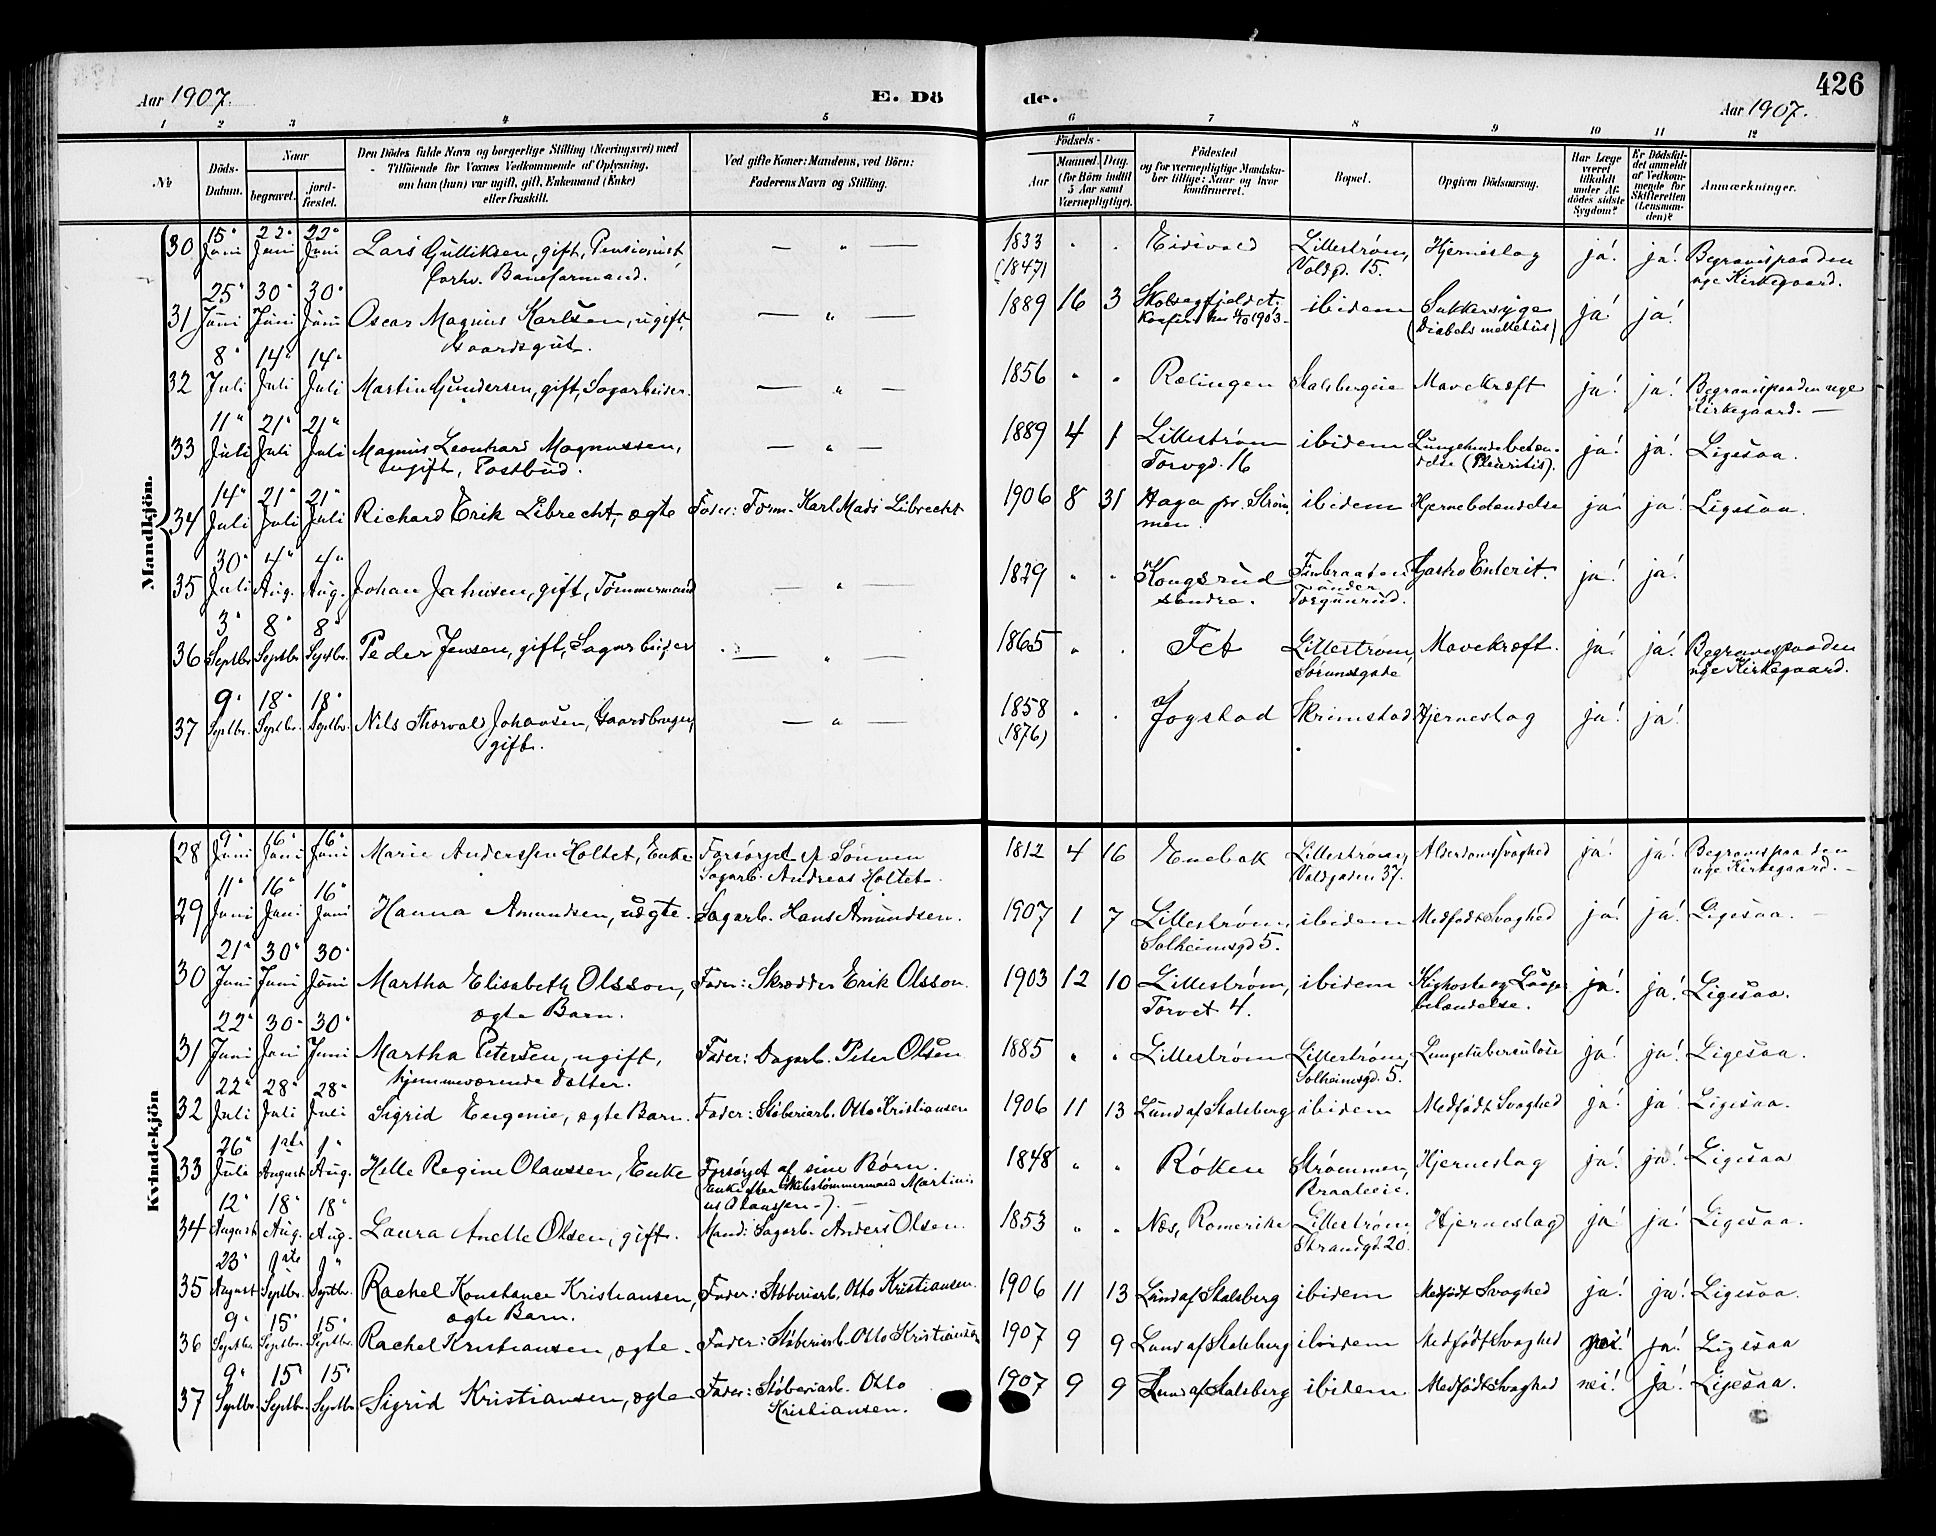 426
Aar 1907. E. Dö de. Aar 1907.
1 2 3 4 5 6 7 8 9 10 11 12
№
Döds-Datum.
Naar
begravet.
jord-fæstet.
Den Dödes fulde Navn og borgerlige Stilling (Næringsvei) med
Tilföiende for Voxnes Vedkommende af Oplysning,
om han (hun) var ugift, gift, Enkemand (Enke)
eller fraskilt.
Ved gifte Koner: Mandens, ved Börn:
Faderens Navn og Stilling.
Födsels-
Aar
Maaned. Dag.
(for Börn indtil
5 Aar samt
Værnepligtige).
Födested
og for værnepligtige Mandskaber tillige: Naar og hvor
konfirmeret.
Bopæl.
Opgiven Dödsaarsag.
Har Læge været tilkaldt under Afdödes sidste Sygdom?
Er Dödsfaldet anmeldt af Vedkommende for Skifteretten (Lensmanden)?
Anmærkninger.
Mandkjön.
30 15" Juni 22" Juni 22" Juni Lars Gulliksen, gift, Pensionist, forhv. Baneformand. — " — 1833 (1847) " " Eidsvold Lillestrøm, Voldgd. 15. Hjerneslag ja! ja! Begravet paa den nye Kirkegaard.
31 25" Juni 30" Juni 30" Juni Oscar Magnus Karlsen, ugift, Gaardsgut. — " — 1889 16 3 ibidem Sukkersyge ja! ja!
32 8" Juli 14" Juli 14" Juli Martin Gundersen, gift, Sagarbeider. — " — 1856 " " Rælingen Stalsbergeie Mavekræft ja! ja! Begravet paa den nye Kirkegaard. —
33 11" Juli 21" Juli 21" Juli Magnus Leonhard Magnussen, ugift, Postbud. — " — 1889 4 1 Lillestrøm Torvgd. 16 ibidem (Pleuritis). ja! ja! Ligesaa.
34 14" Juli 21" Juli 21" Juli Richard Erik Librecht, ægte Fader: Form. Karl Mads Librecht 1906 8 31 Haga pr. Strømmen. ibidem Hjernebetændelse ja! ja! Ligesaa.
35 30" Juli 4" Aug. 4" Aug. Johan Jahnsen, gift, Tømmermand — " — 1829 " " Kongsrud søndre. Finbraaten under Torgunrud. Gastro Enterit. ja! ja!
36 3" Septbr. 8" Septbr. 8" Septbr. Peder Jensen, gift, Sagarbeider — " — 1865 " " Fet Lillestrøm, Sørumsgade Mavekræft. ja! ja! Begravet paa den nye Kirkegaard.
37 9" Septbr. 18" Septbr. 18" Septbr. Nils Thorvald Johansen, Gaardbruger, gift. — " — 1858 (1876) " " Jogstad Skrimstad Hjerneslag ja! ja!
Kvindekjön
28 9" Juni 16" Juni 16" Juni Marie Anderssen Holtet, Enke Forsørget af Sønnen Sagarb. Andreas Holtet. 1812 4 16 Enebak Lillestrøm, Voldgaden 37. Alderdomssvaghed ja! ja! Begravet paa den nye Kirkegaard. —
29 11" Juni 16" Juni 16" Juni Hanna Amundsen, uægte. Sagarb. Hans Amundsen. 1907 1 7 Lillestrøm, Solheimsgd 5. ibidem Medfødt Svaghed ja! ja! Ligesaa. —
30 21" Juni 30" Juni 30" Juni Martha Elisabeth Olsson, ægte Barn. Fader: Skrædder Erik Olsson. 1903 12 10 Lillestrøm, Torvet 4. ibidem Kighoste og Lungebetændelse. ja! ja! Ligesaa.
31 22" Juni 30" Juni 30" Juni Martha Petersen, ugift, hjemmeværende Datter. Fader: Dagarb. Peter Olsen 1885 " " Lillestrøm Lillestrøm, Solheimsgd. 5. Lungetuberculose ja! ja! Ligesaa.
32 22" Juli 28" Juli 28" Juli Sigrid Eugenie, ægte Barn. Fader: Støberiarb. Otto Kristiansen 1906 11 13 Lund af Stalsberg ibidem Medfødt Svaghed ja! ja! Ligesaa.
33 26" Juli 1ste August 1" Aug. Helle Regine Olaussen, Enke Forsørget af sine Børn. (Enke efter Skibstømmermand Martinius Olaussen.) — 1848 " " Røken Strømmen, Braateeie. Hjerneslag ja! ja! Ligesaa
34 12" August 18" Aug. 18" Aug. Laura Anette Olsen, gift. Mand: Sagarb. Anders Olsen. 1853 " " Nes, Romerike Lillestrøm, Strandgd. 20. Hjerneslag ja! ja! Ligesaa.
35 23" August 1ste Septbr. 1" Septbr. Rachel Konstance Kristiansen, ægte Barn. Fader: Støberiarb. Otto Kristiansen. 1906 11 13 Lund af Stalsberg ibidem Medfødt Svaghed ja! ja! Ligesaa.
36 9" Septbr. 15" Septbr. 15" Septbr. Rachel Kristiansen, ægte. Fader: Støberiarb. Otto Kristiansen 1907 9 9 Lund af Stalsberg ibidem Medfødt Svaghed nei! ja! Ligesaa
37 9" Septbr. 15" Septbr. 15" Septbr. Sigrid Kristiansen, ægte Fader: Støberiarb. Otto Kristiansen. 1907 9 9 Lund af Stalsberg ibidem Medfødt Svaghed nei! ja! Ligesaa.